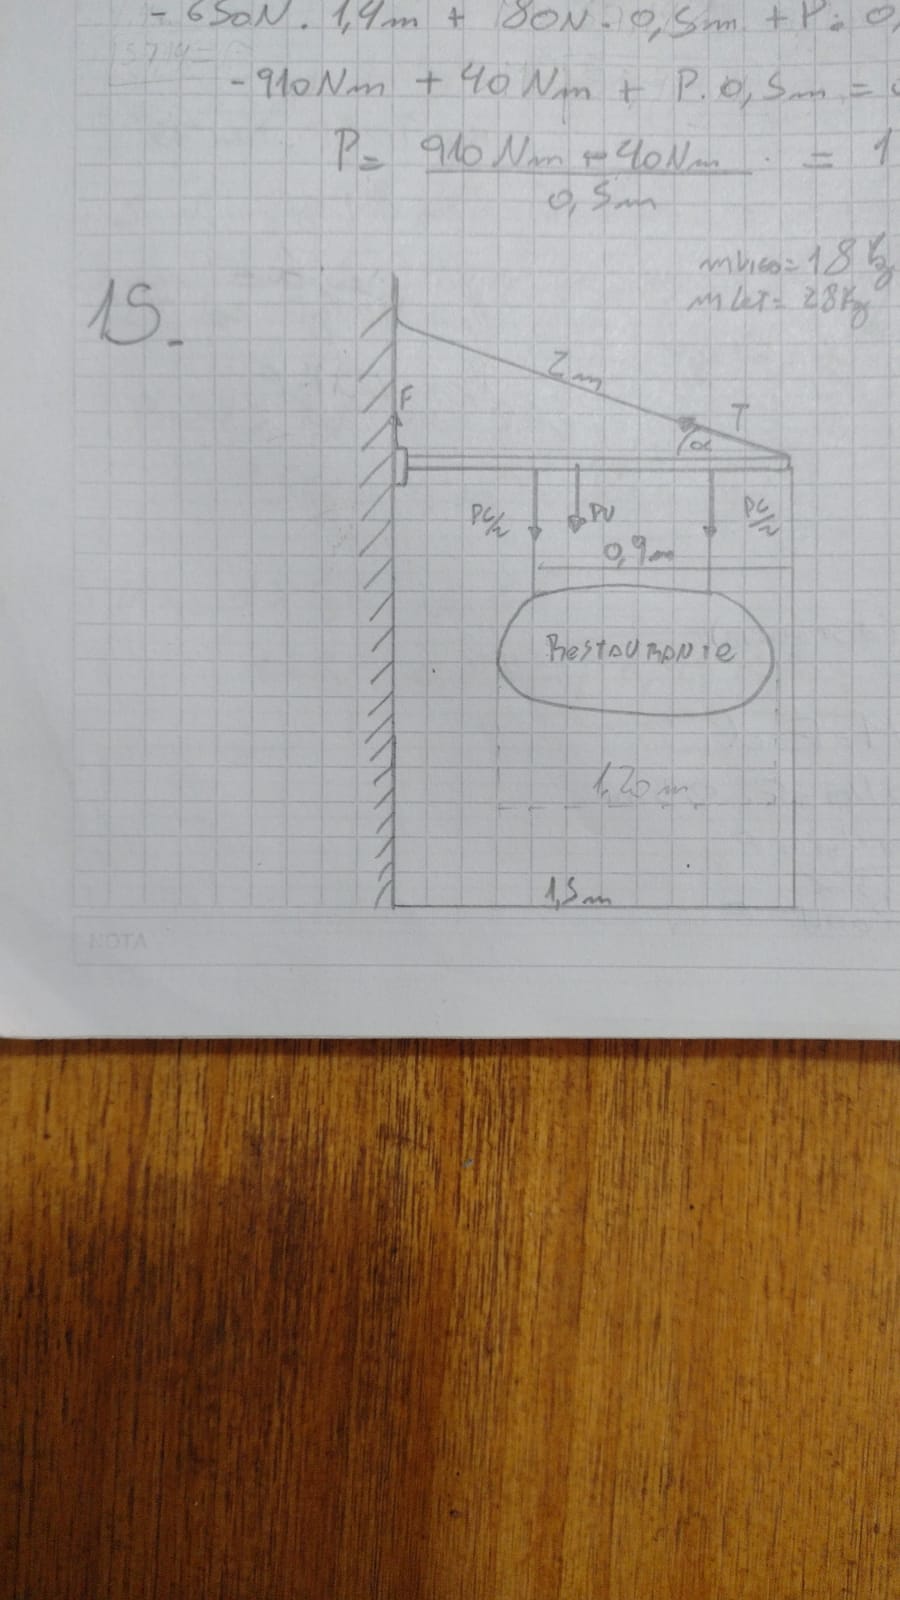 - 650N. 1,4m + 80N. 0,5m + P. 0,
- 910Nm + 40Nm + P. 0,5m = 0
P= 910Nm - 40Nm = 1
0,5m
15.
m let = 28Kg
2m
F
T
α
Pc/2
PV
Pc/2
0,9m
Restaurante
1,20m
1,5m
NOTA